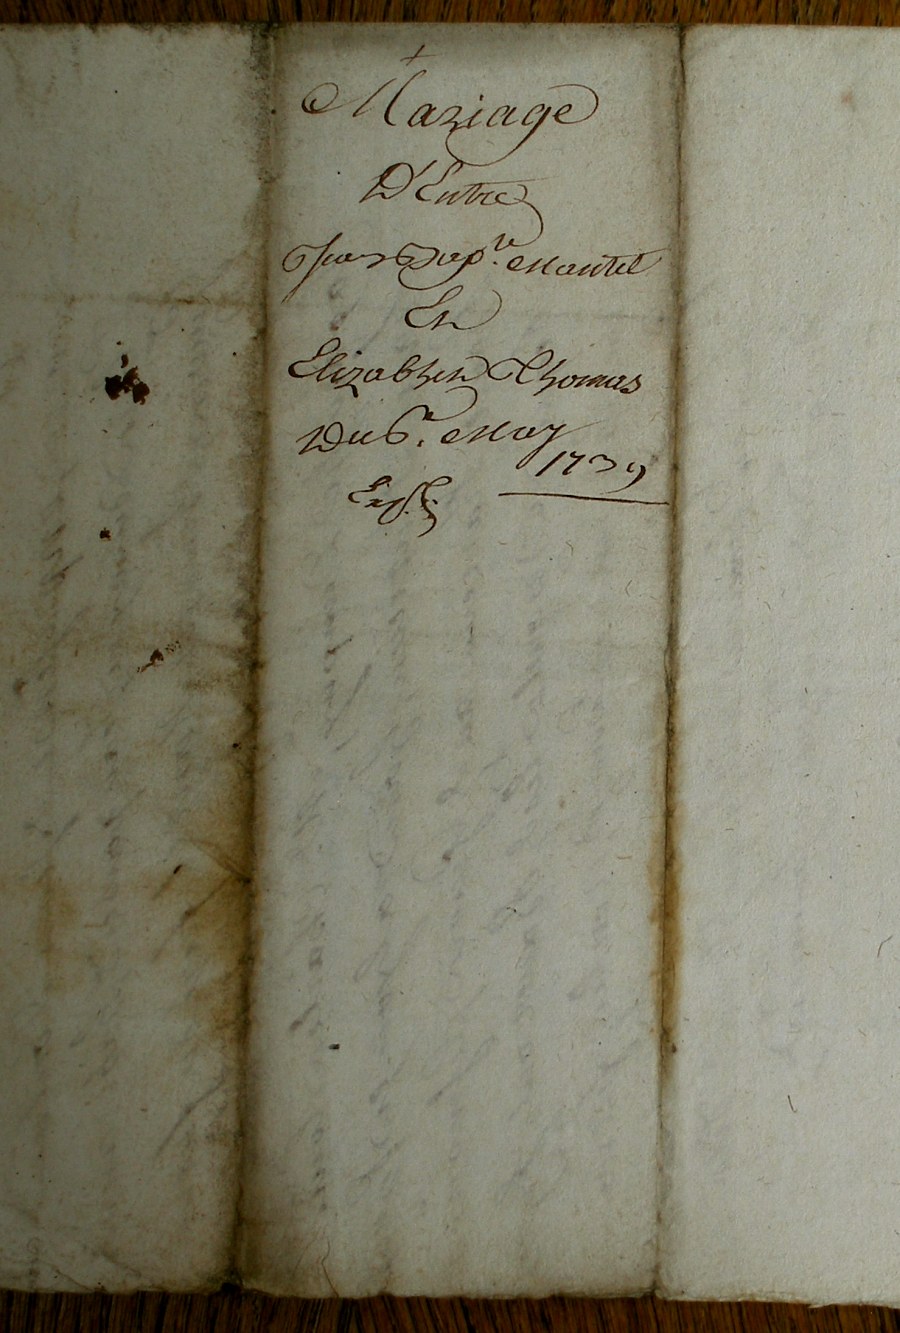 Mariage
D'Entre
Jean Bap.te Mantel
Et
Elizabheth Thomas
Du 6.e May
1739
Exp.